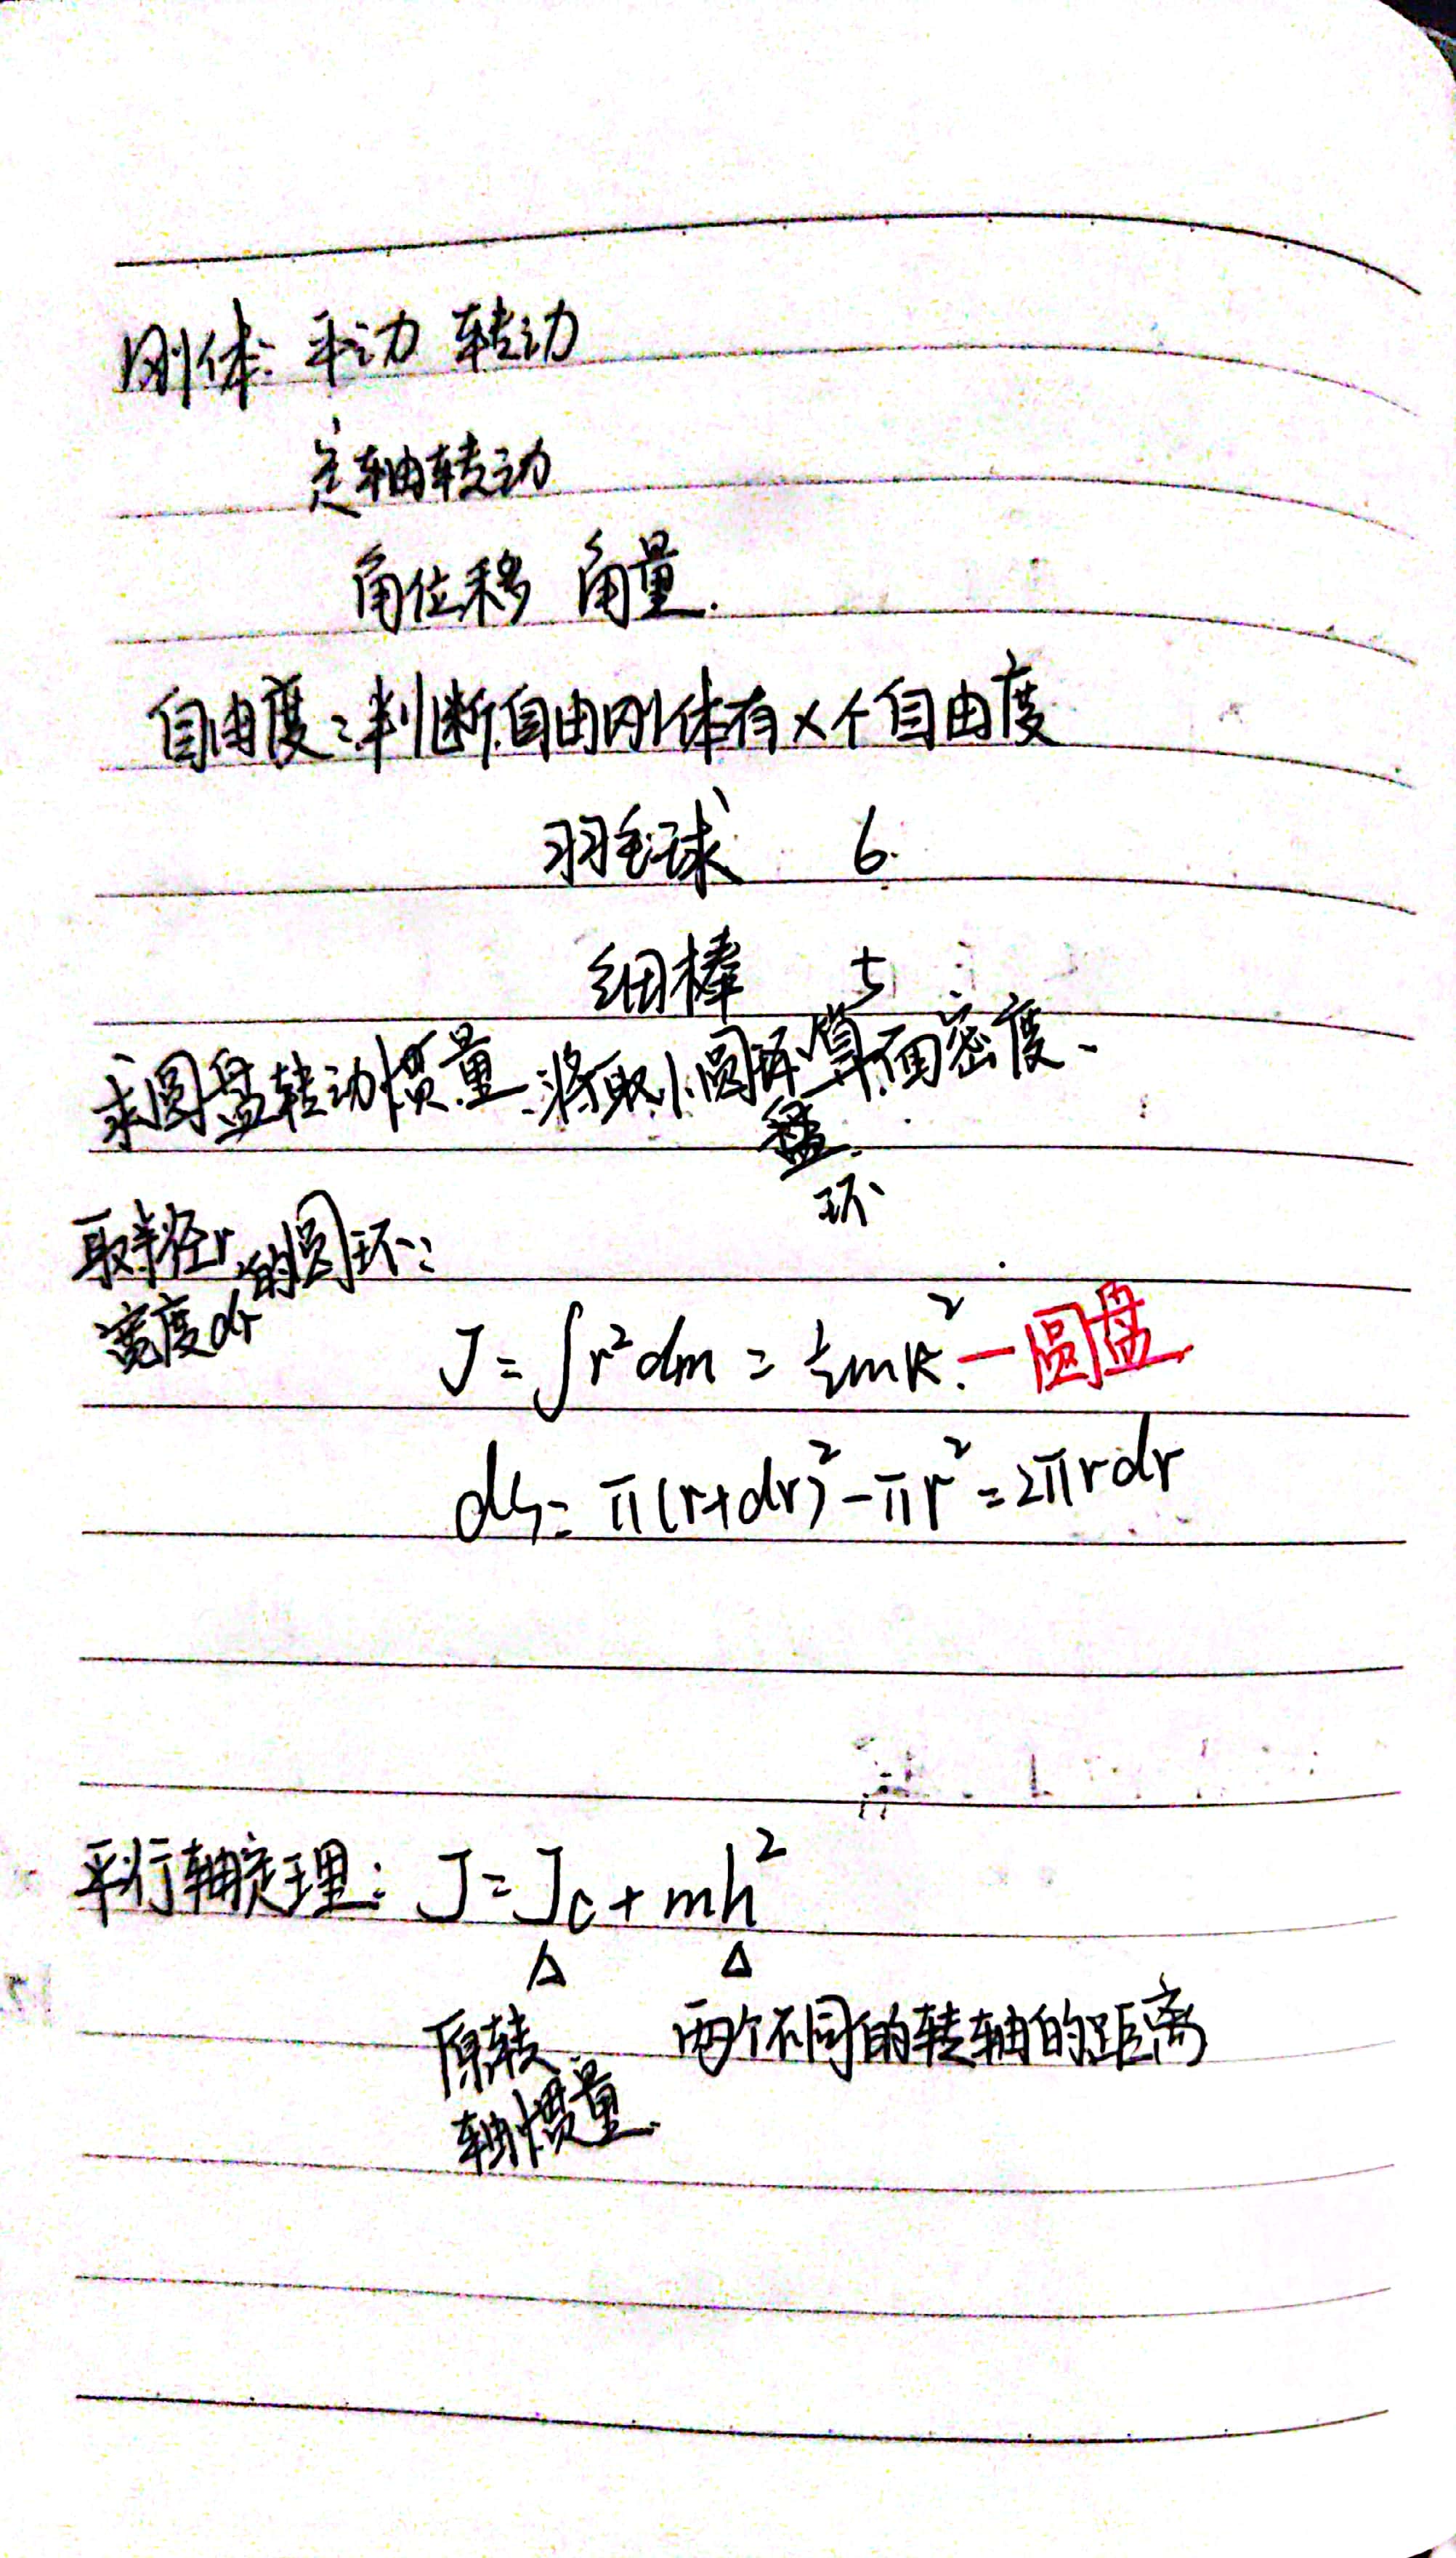 刚体: 平动 转动
定轴转动
角位移 角量.
自由度:判断自由刚体有x个自由度
羽毛球 6.
细棒 5
求圆盘转动惯量.将取小圆环算面密度、
环
取半径r的圆环:
宽度dr
J=∫r²dm=½mR².—圆盘
ds=π(r+dr)²-πr²=2πrdr
平行轴定理: J=Jc+mh²
△ △
原转 两个不同的转轴的距离
轴惯量.